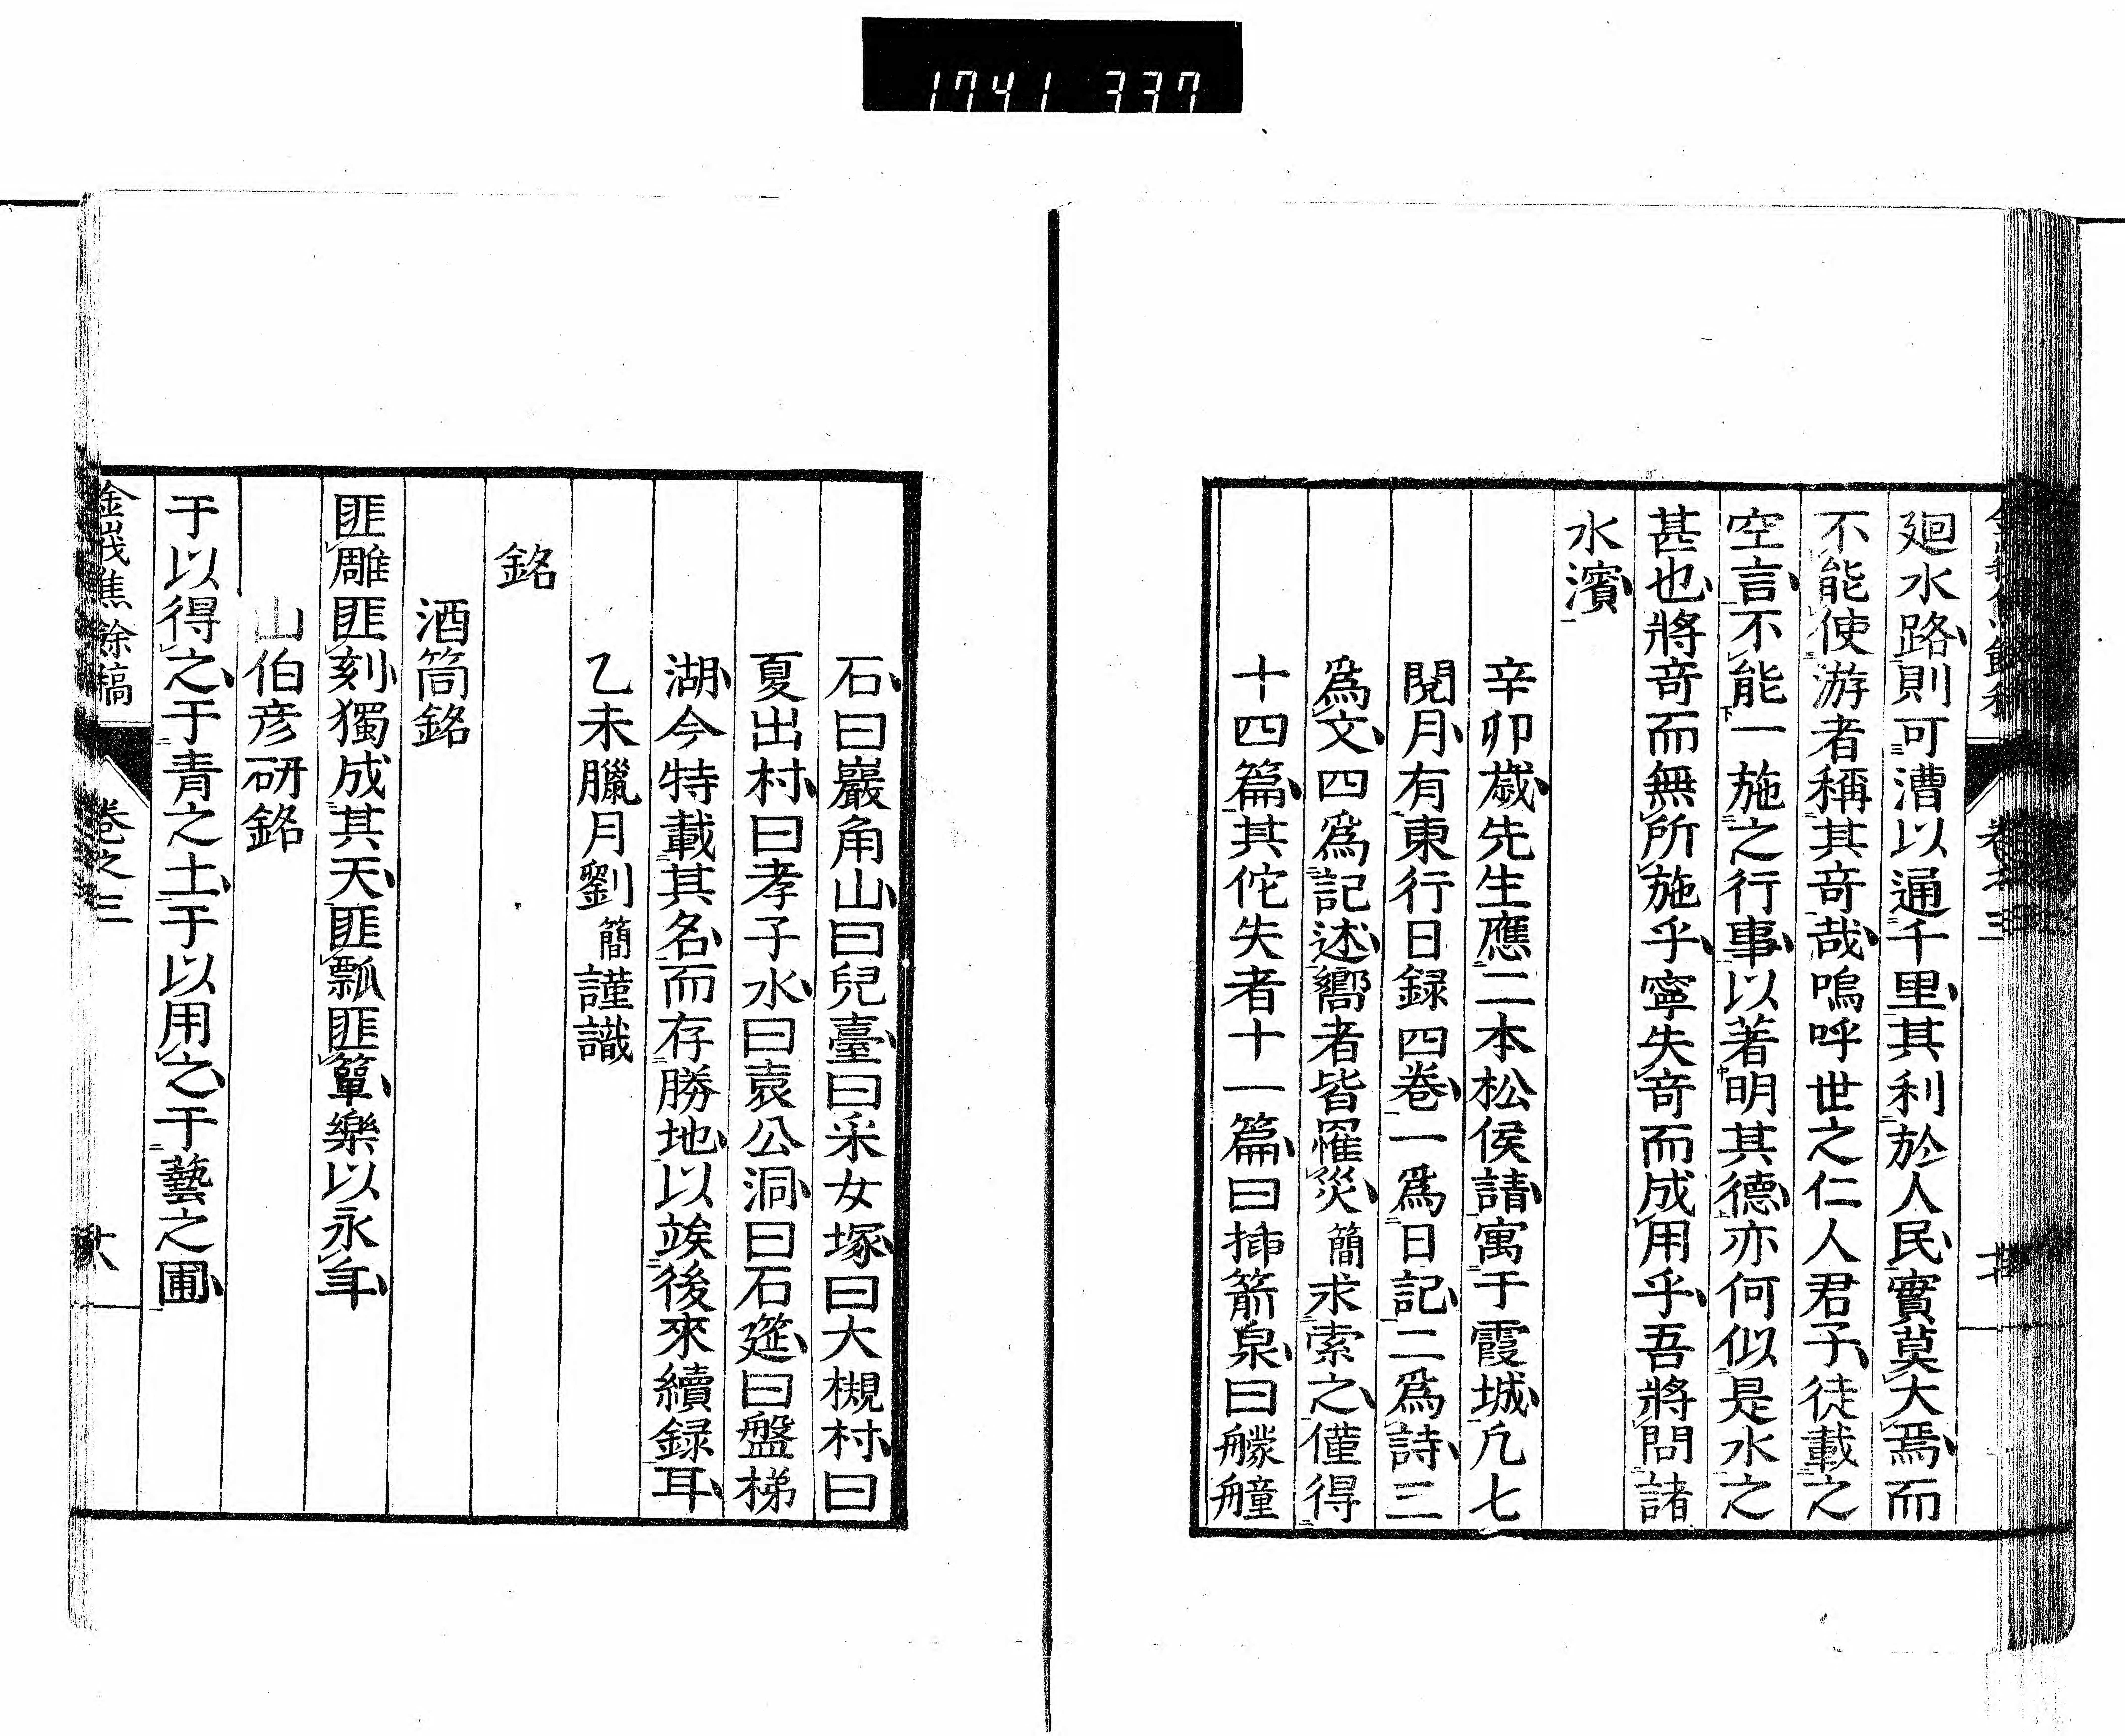 1741 337
廻水路則可漕以通千里其利於人民實莫大焉而
不能使游者稱其奇哉嗚呼世之仁人君子徒載之
空言不能一施之行事以著明其德亦何似是水之
甚也將奇而無所施乎寧失奇而成用乎吾將問諸
水濱
辛卯歲先生應二本松侯請寓于霞城凢七
閱月有東行日録四卷一爲日記二爲詩三
爲文四爲記述嚮者皆罹災簡求索之僅得
十四篇其佗失者十一篇曰挿箭泉曰艨艟
石曰巖角山曰兒臺曰采女塚曰大槻村曰
夏出村曰孝子水曰袁公洞曰石筵曰盤梯
湖今特載其名而存勝地以竢後來續録耳
乙未臘月劉簡謹識
銘
酒筒銘
匪雕匪刻獨成其天匪瓢匪簞樂以永年
山伯彦研銘
于以得之于青之土于以用之于藝之圃
金峩焦餘稿 卷之三